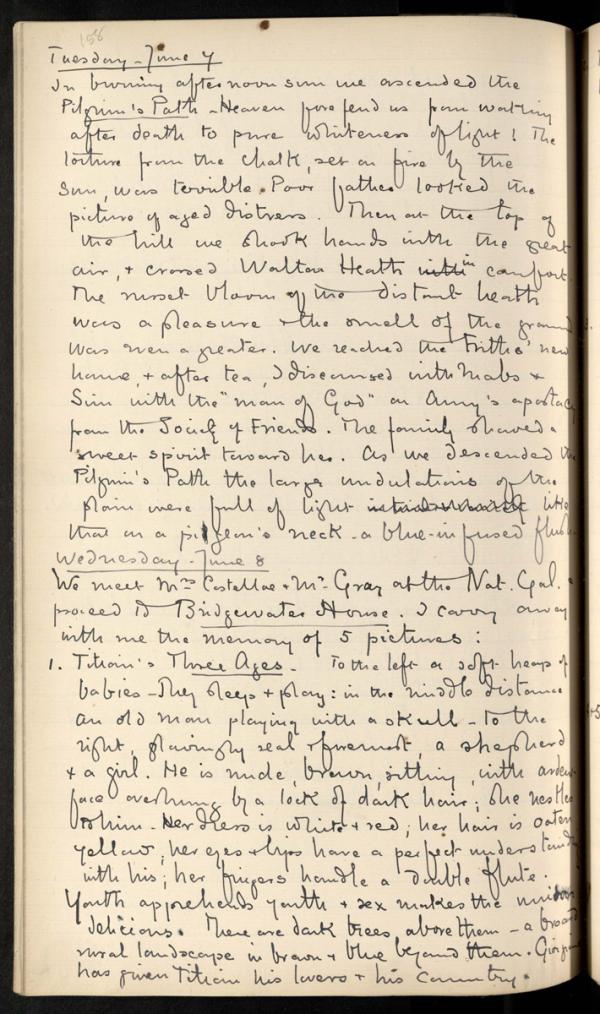 158
Tuesday - June 7
In burning afternoon sun we ascended the
Pilgrim's Path - Heaven forefend us from walking
after death to pure whiteness of light! The
torture from the chalk, set on fire by the
sun, was terrible. Poor father looked the
picture of aged distress. Then at the top of
the hill we shook hands with the great
air, & crossed Walton Heath with in comfort.
The russet bloom of the distant heath
was a pleasure & the smell of the ground
was even a greater. We reached the Friths' new
home, & after tea, I discoursed with Mabs &
Sim with the "man of God" on Amy's apostacy
from the Society of Friends. The family showed a
sweet spirit toward her. As we descended the
Pilgrim's Path the large undulations of the
plain were full of light like
that on a pigeon's neck - a blue-infused flush
Wednesday - June 8
We meet Mrs Costelloe & Mr Gray at the Nat. Gal. &
proceed to Bridgewater House. I carry away
with me the memory of 5 pictures:
1. Titian's Three Ages - To the left a soft heap of
babies - They sleep & play: in the middle distance
an old man playing with a skull - to the
right, glowingly real & foremost, a shepherd
& a girl. He is nude, brown, sitting, with ardent
face overhung by a lock of dark hair; she nestles
to him - Her dress is white & red; her hair is oaten
yellow; her eyes & lips have a perfect understanding
with his; her fingers handle a double flute.
Youth apprehends youth & sex makes the
delicious. There are dark trees above them - a broad
rural landscape in brown & blue beyond them. Giorgione
has given Titian his lovers & his country.